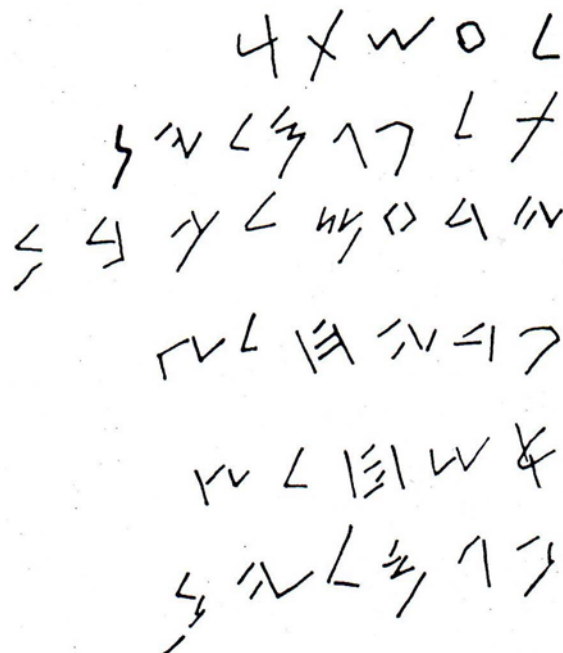 𐤋𐤏𐤔𐤕𐤓
𐤕𐤋𐤐𐤂𐤌𐤋𐤉𐤍
𐤉𐤃𐤏𐤌𐤋𐤊𐤁𐤍
𐤐𐤃𐤉𐤇𐤋𐤑
𐤀𐤔𐤇𐤋𐤑
𐤐𐤂𐤌𐤋𐤉𐤍